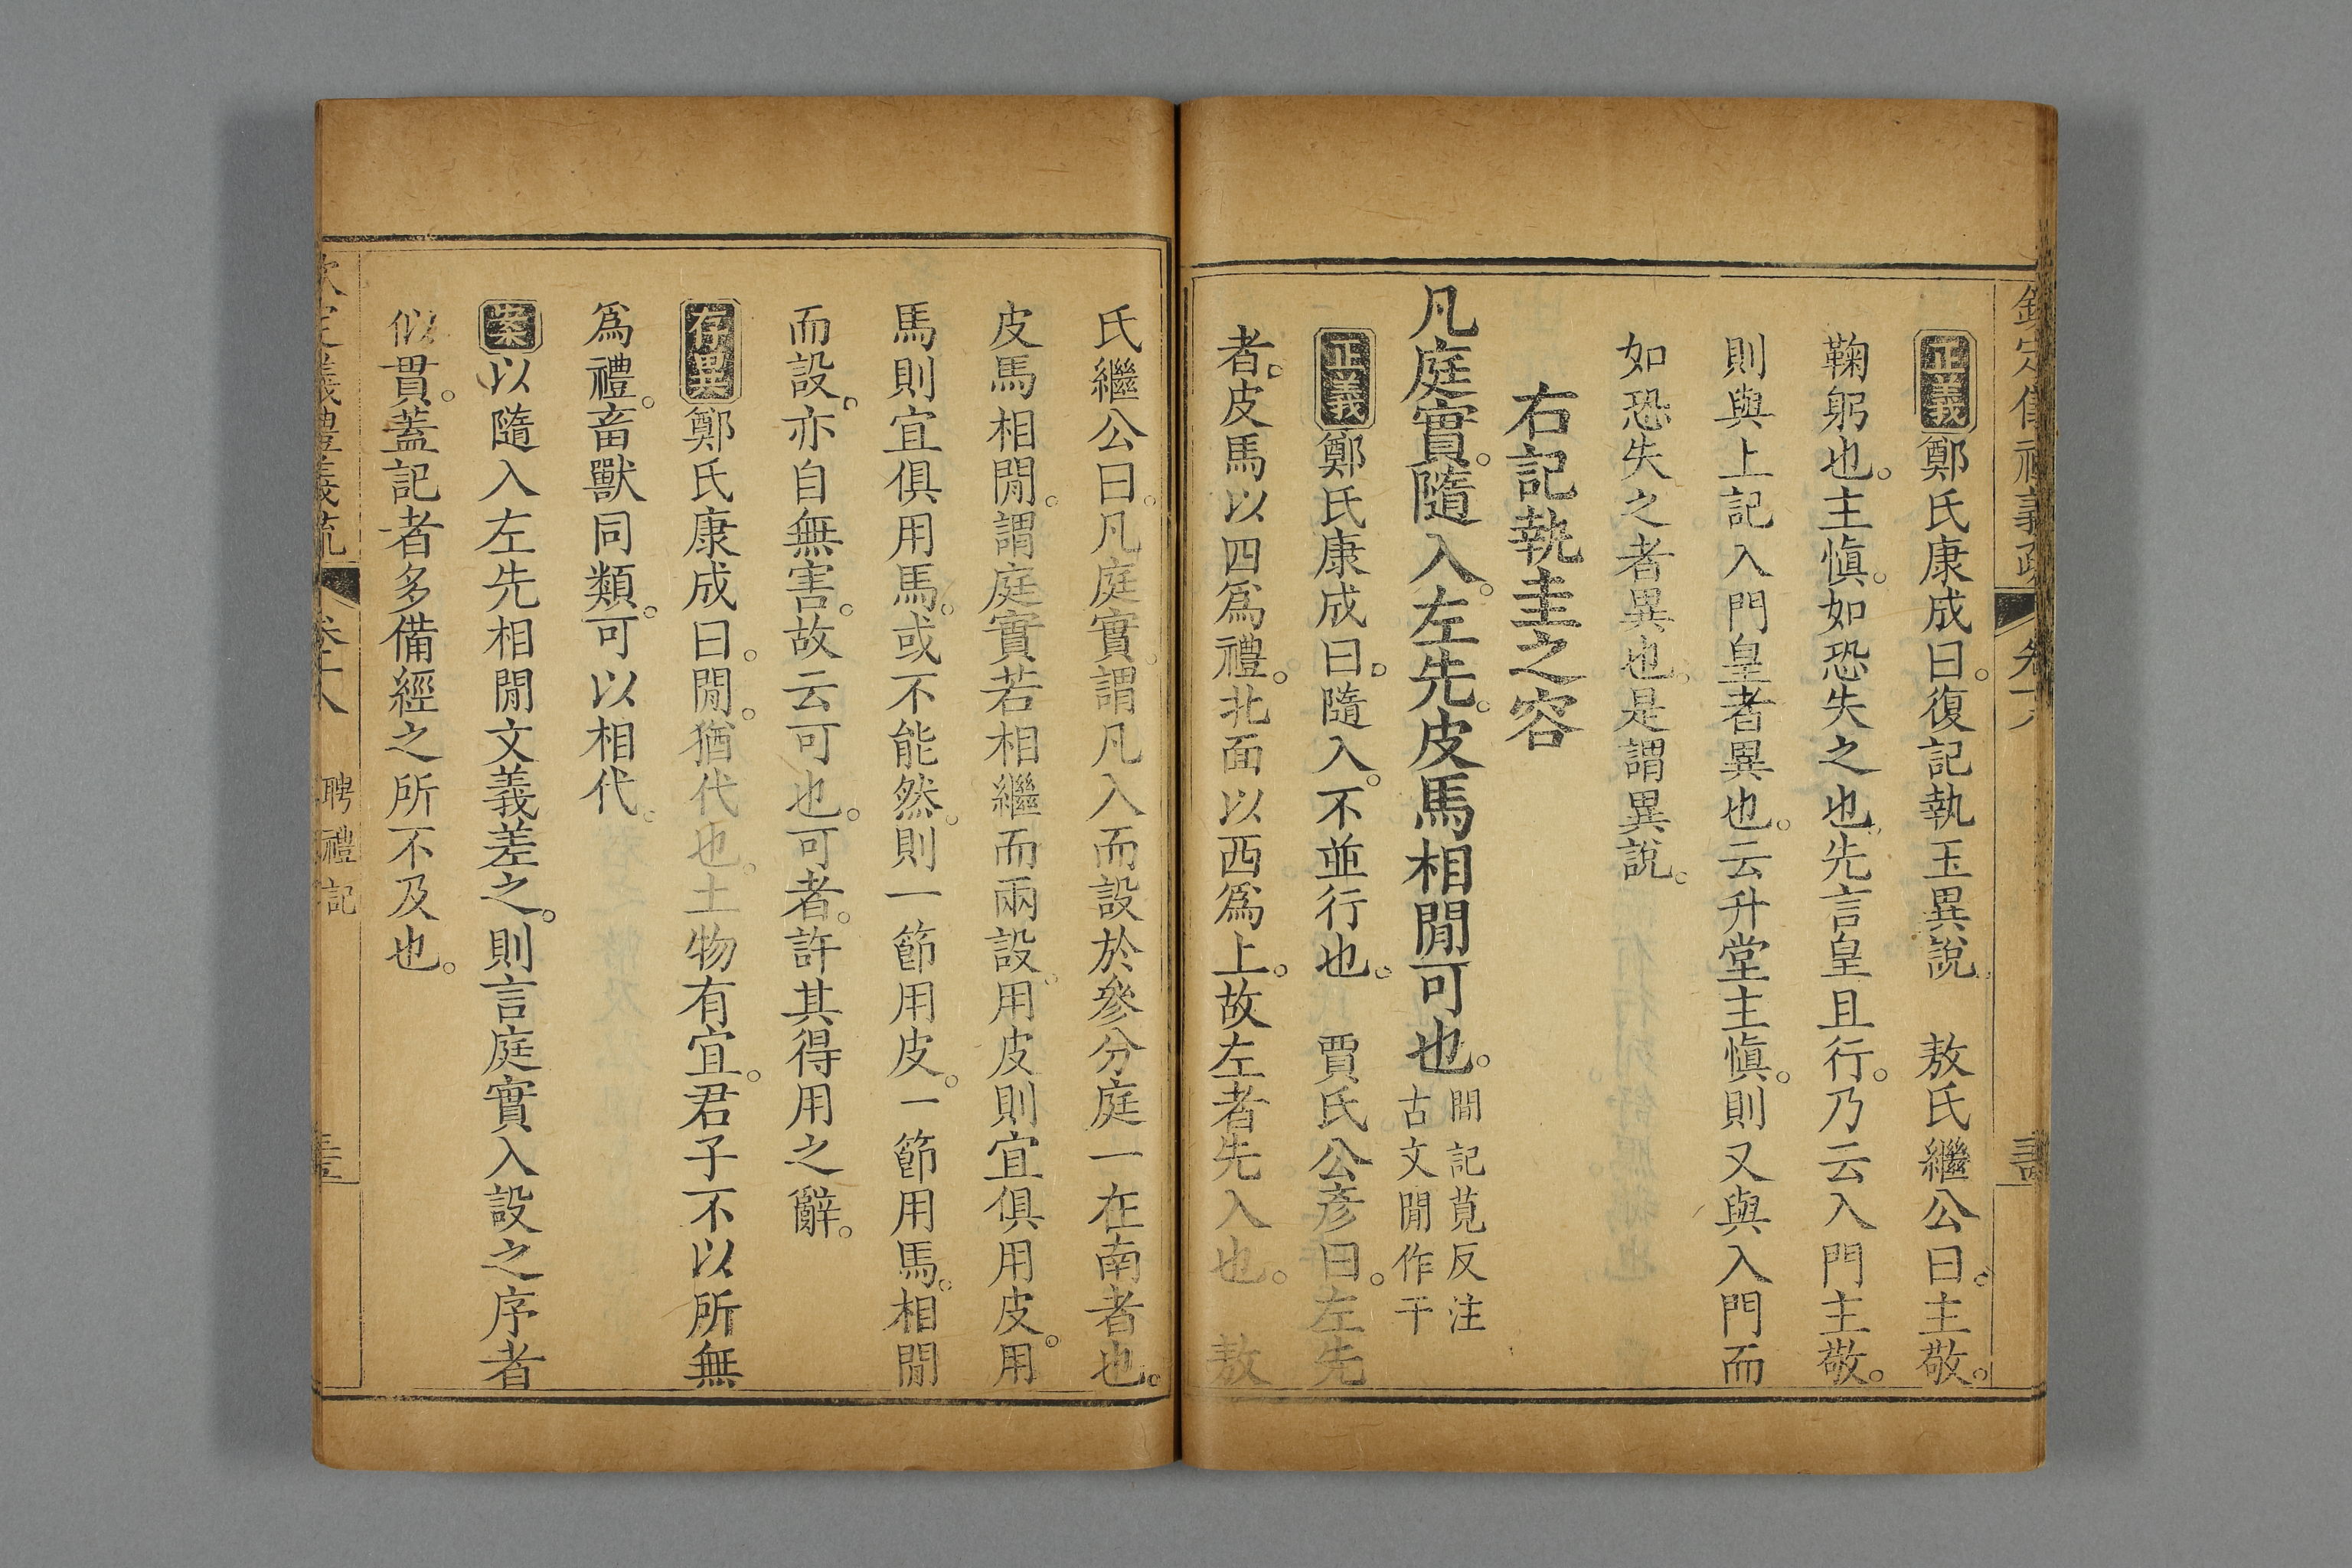 正義鄭氏康成曰。復記執玉異說。　敖氏繼公曰。主敬。
鞠躬也。主愼。如恐失之也。先言皇且行。乃云入門主敬。
則與上記入門皇者異也。云升堂主愼。則又與入門而
如恐失之者異也。是謂異說。
右記執圭之容
凡庭實。隨入。左先。皮馬相閒可也。
閒記莧反注
古文閒作干
正義鄭氏康成曰。隨入。不並行也。　賈氏公彥曰。左先
者。皮馬以四爲禮。北面以西爲上。故左者先入也。　敖
氏繼公曰。凡庭實。謂凡入而設於參分庭一在南者也。
皮馬相閒。謂庭實若相繼而兩設。用皮則宜俱用皮。用
馬則宜俱用馬。或不能然。則一節用皮。一節用馬。相閒
而設。亦自無害。故云可也。可者。許其得用之辭。
存異鄭氏康成曰。閒。猶代也。土物有宜。君子不以所無
爲禮。畜獸同類。可以相代。
案以隨入左先相閒文義差之。則言庭實入設之序者
似貫。蓋記者多備經之所不及也。
欽定儀禮義疏　卷十八　聘禮記